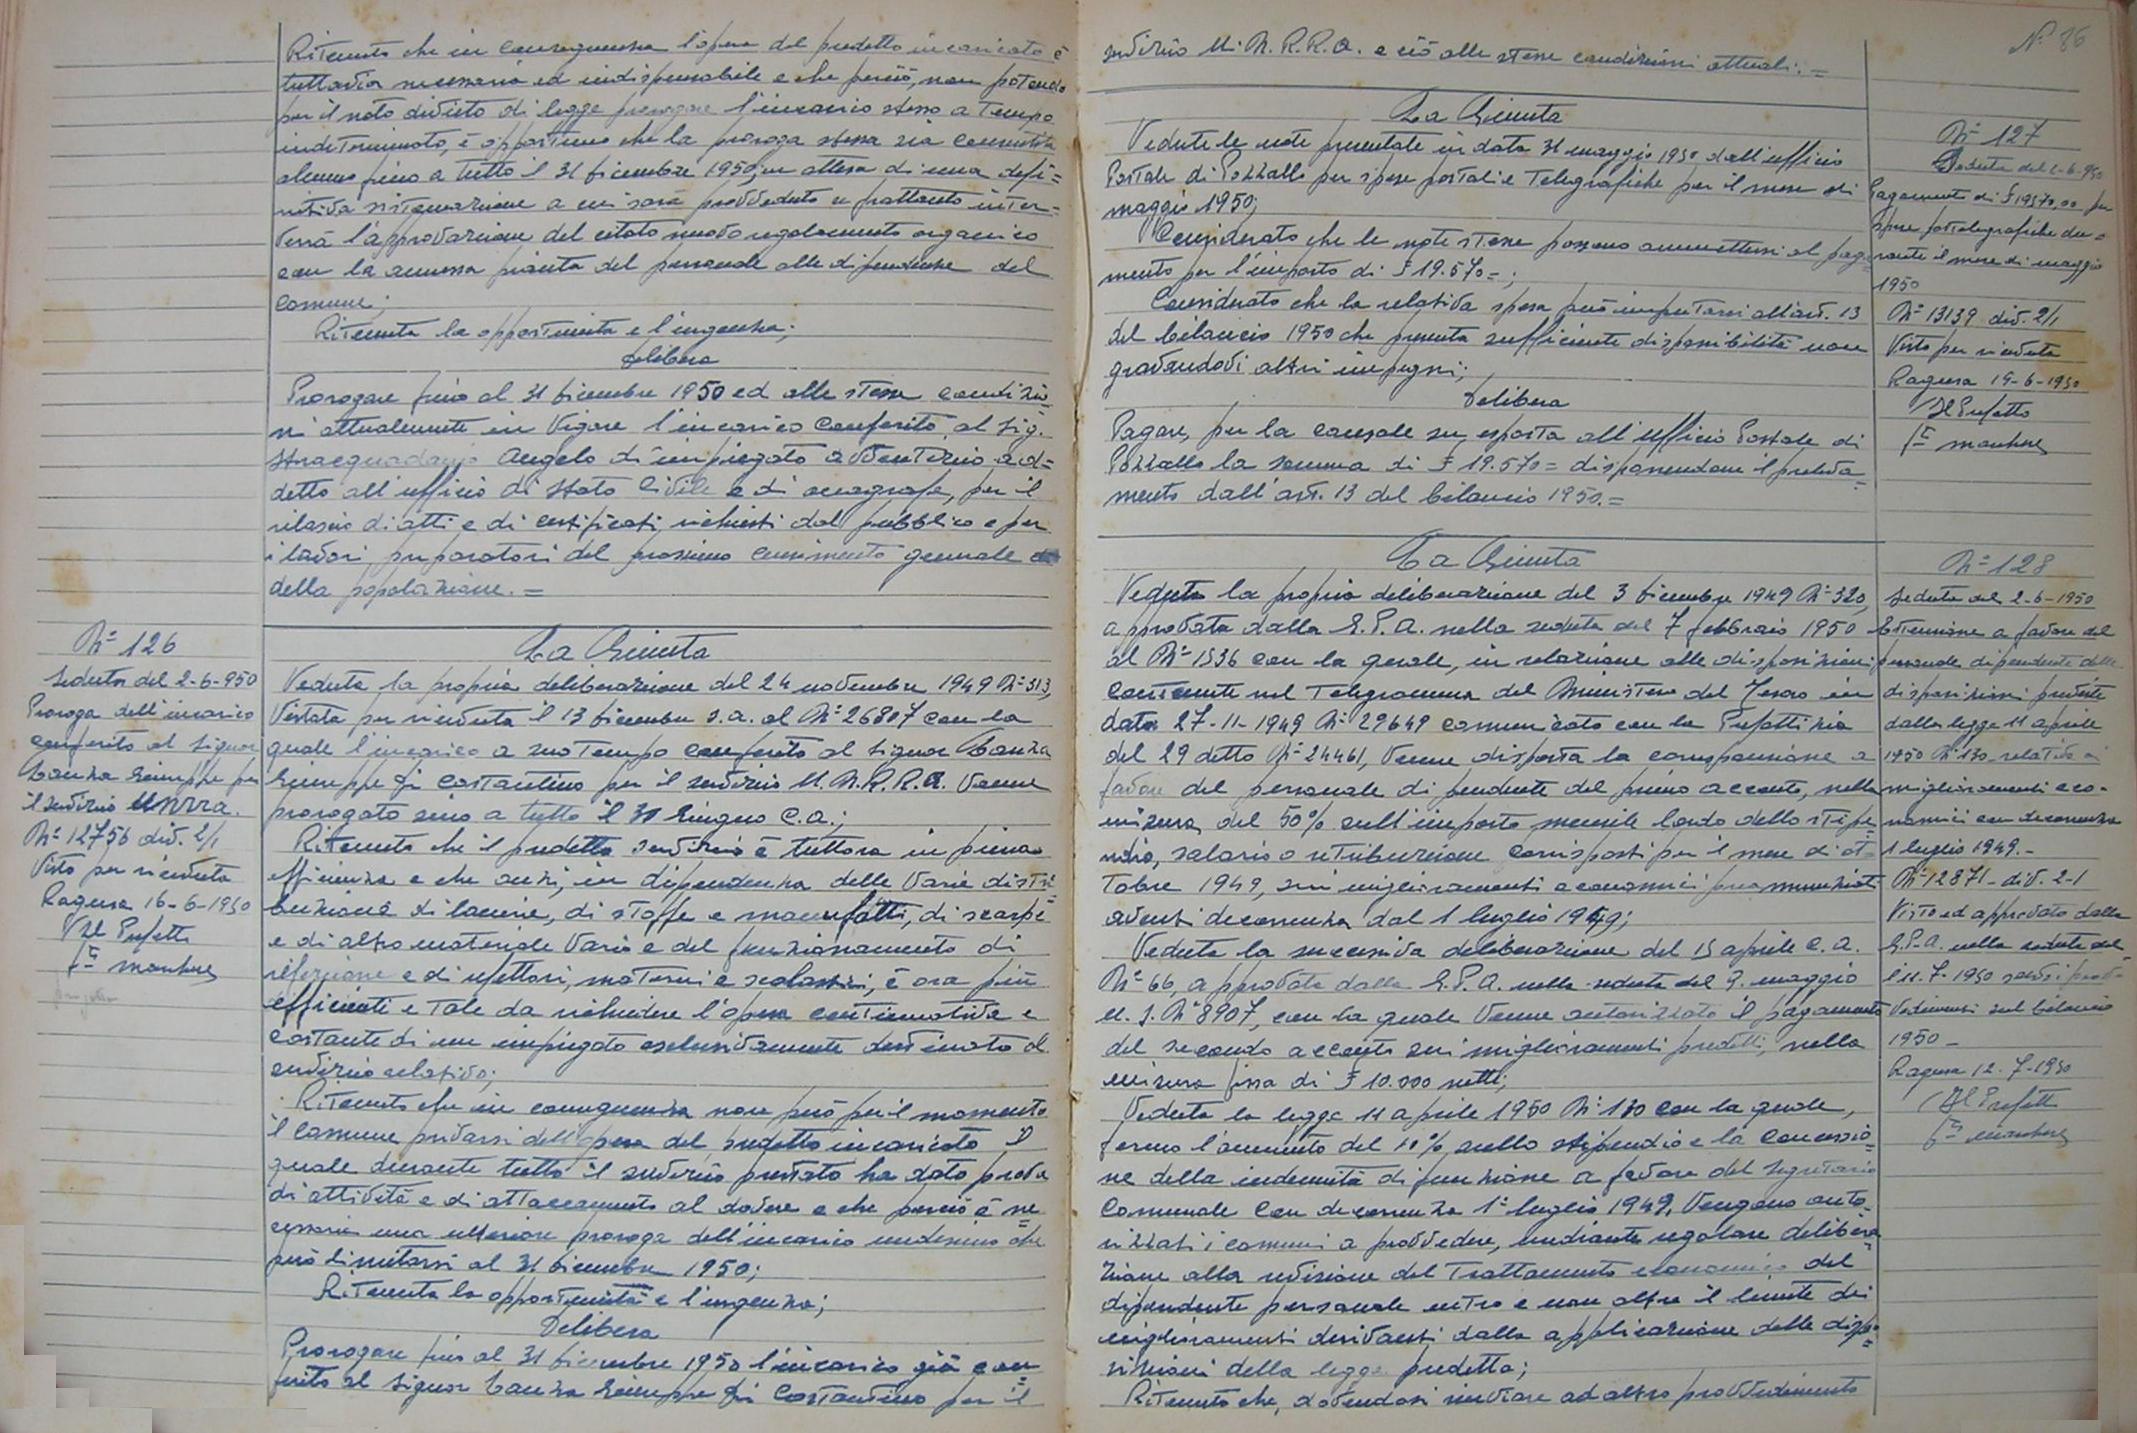 Ritenuto che in conseguenza l'opera del predetto incaricato è
tuttavia necessaria ed indispensabile e che perciò, non potendo
per il noto divieto di legge prorogare l'incarico stesso a tempo
indeterminato, è opportuno che la proroga stessa sia consentita
almeno fino a tutto il 31 dicembre 1950, in attesa di una defi=
nitiva sistemazione a cui sarà provveduto se frattanto inter=
verrà l'approvazione del citato nuovo regolamento organico
con la annessa pianta del personale alle dipendenze del
Comune;
Ritenuta la opportunità e l'urgenza;
Delibera
Prorogare fino al 31 dicembre 1950 ed alle stesse condizio=
ni attualmente in vigore l'incarico conferito al Sig.
Stracquadanio Angelo di impiegato avventizio ad=
detto all'ufficio di Stato Civile e di anagrafe, per il
rilascio di atti e di certificati richiesti dal pubblico e per
i lavori preparatori del prossimo censimento generale
della popolazione.=
Nº 126
Seduta del 2-6-950
Proroga dell'incarico
conferito al Signor
Giuseppe per
il servizio UNRRA.
Nº 12756 div. 2/1
Visto per ricevuta
Ragusa 16-6-1950
Il Prefetto
La Giunta
Veduta la propria deliberazione del 24 novembre 1949 Nº 313,
Vistata per ricevuta il 13 dicembre s.a. al Nº 26807 con la
quale l'incarico a suo tempo conferito al Signor
Giuseppe di Costantino per il servizio U.N.R.R.A. venne
prorogato sino a tutto il 30 Giugno c.a.;
Ritenuto che il predetto servizio è tuttora in piena
efficienza e che anzi, in dipendenza delle varie distri=
buzioni di lacune, di stoffe e manufatti, di scarpe
e di altro materiale vario e del funzionamento di
refezione e di refettori, materni e scolastici, è ora più
efficiente e tale da richiedere l'opera continuativa e
costante di un impiegato esclusivamente destinato al
servizio relativo;
Ritenuto che in conseguenza non può per il momento
il Comune privarsi dell'opera del predetto incaricato il
quale durante tutto il servizio prestato ha dato prova
di attività e di attaccamento al dovere e che perciò è ne=
cessaria una ulteriore proroga dell'incarico medesimo che
può limitarsi al 31 dicembre 1950;
Ritenuta la opportunità e l'urgenza;
Delibera
Prorogare fino al 31 dicembre 1950 l'incarico già con=
ferito al Signor Giuseppe di Costantino per il
Nº 86
servizio U.N.R.R.A. e ciò alle stesse condizioni attuali.=
La Giunta
Vedute le note presentate in data 31 maggio 1950 dall'ufficio
Postale di Pozzallo per spese postali e telegrafiche per il mese di
maggio 1950;
Considerato che le note stesse possono ammettersi al paga=
mento per l'importo di £ 19.570=;
Considerato che la relativa spesa può imputarsi all'art. 13
del bilancio 1950 che presenta sufficiente disponibilità non
gravandovi altri impegni;
Delibera
Pagare, per la causale su esposta all'ufficio Postale di
Pozzallo la somma di £ 19.570= disponendone il preleva=
mento dall'art. 13 del bilancio 1950.=
Nº 127
Seduta del 2-6-950
Pagamento di £ 19570,00 per
spese postelegrafiche du=
rante il mese di maggio
1950
Nº 13139 div. 2/1
Visto per ricevuta
Ragusa 19-6-1950
Il Prefetto
La Giunta
Veduta la propria deliberazione del 3 dicembre 1949 Nº 320,
approvata dalla G.P.A. nella seduta del 7 febbraio 1950
al Nº 1536 con la quale, in relazione alle disposizioni
contenute nel telegramma del Ministero del Tesoro in
data 27-11-1949 Nº 29649 comunicato con la Prefettizia
del 29 detto Nº 24461, venne disposta la corresponsione a
favore del personale dipendente del primo acconto, nella
misura del 50% sull'importo mensile lordo dello stipe=
ndio, salario o retribuzione corrisposti per il mese di ot=
tobre 1949, sui miglioramenti economici preannunziati
aventi decorrenza dal 1 luglio 1949;
Veduta la successiva deliberazione del 15 aprile c.a.
Nº 66, approvata dalla G.P.A. nella seduta del 9 maggio
u.s. Nº 8907, con la quale venne autorizzato il pagamento
del secondo acconto sui miglioramenti predetti, nella
misura fissa di £ 10.000 netti;
Veduta la legge 11 aprile 1950 Nº 130 con la quale,
fermo l'aumento del 10% sullo stipendio e la concessio=
ne della indennità di funzione a favore del Segretario
Comunale con decorrenza 1º luglio 1949, vengono auto=
rizzati i comuni a provvedere, mediante regolare delibera=
zione alla revisione del trattamento economico del
dipendente personale entro e non oltre il limite dei
miglioramenti derivanti dalla applicazione delle dispo=
sizioni della legge predetta;
Ritenuto che, dovendosi rinviare ad altro provvedimento
Nº 128
Seduta del 2-6-1950
Estensione a favore del
personale dipendente delle
disposizioni previste
dalla legge 11 aprile
1950 Nº 130 relativa ai
miglioramenti eco=
nomici con decorrenza
1 luglio 1949.-
Nº 12871- div. 2-1
Visto ed approvato dalla
G.P.A. nella seduta del
l'11.7.1950 salvo i prov=
vedimenti sul bilancio
1950-
Ragusa 12-7-1950
Il Prefetto